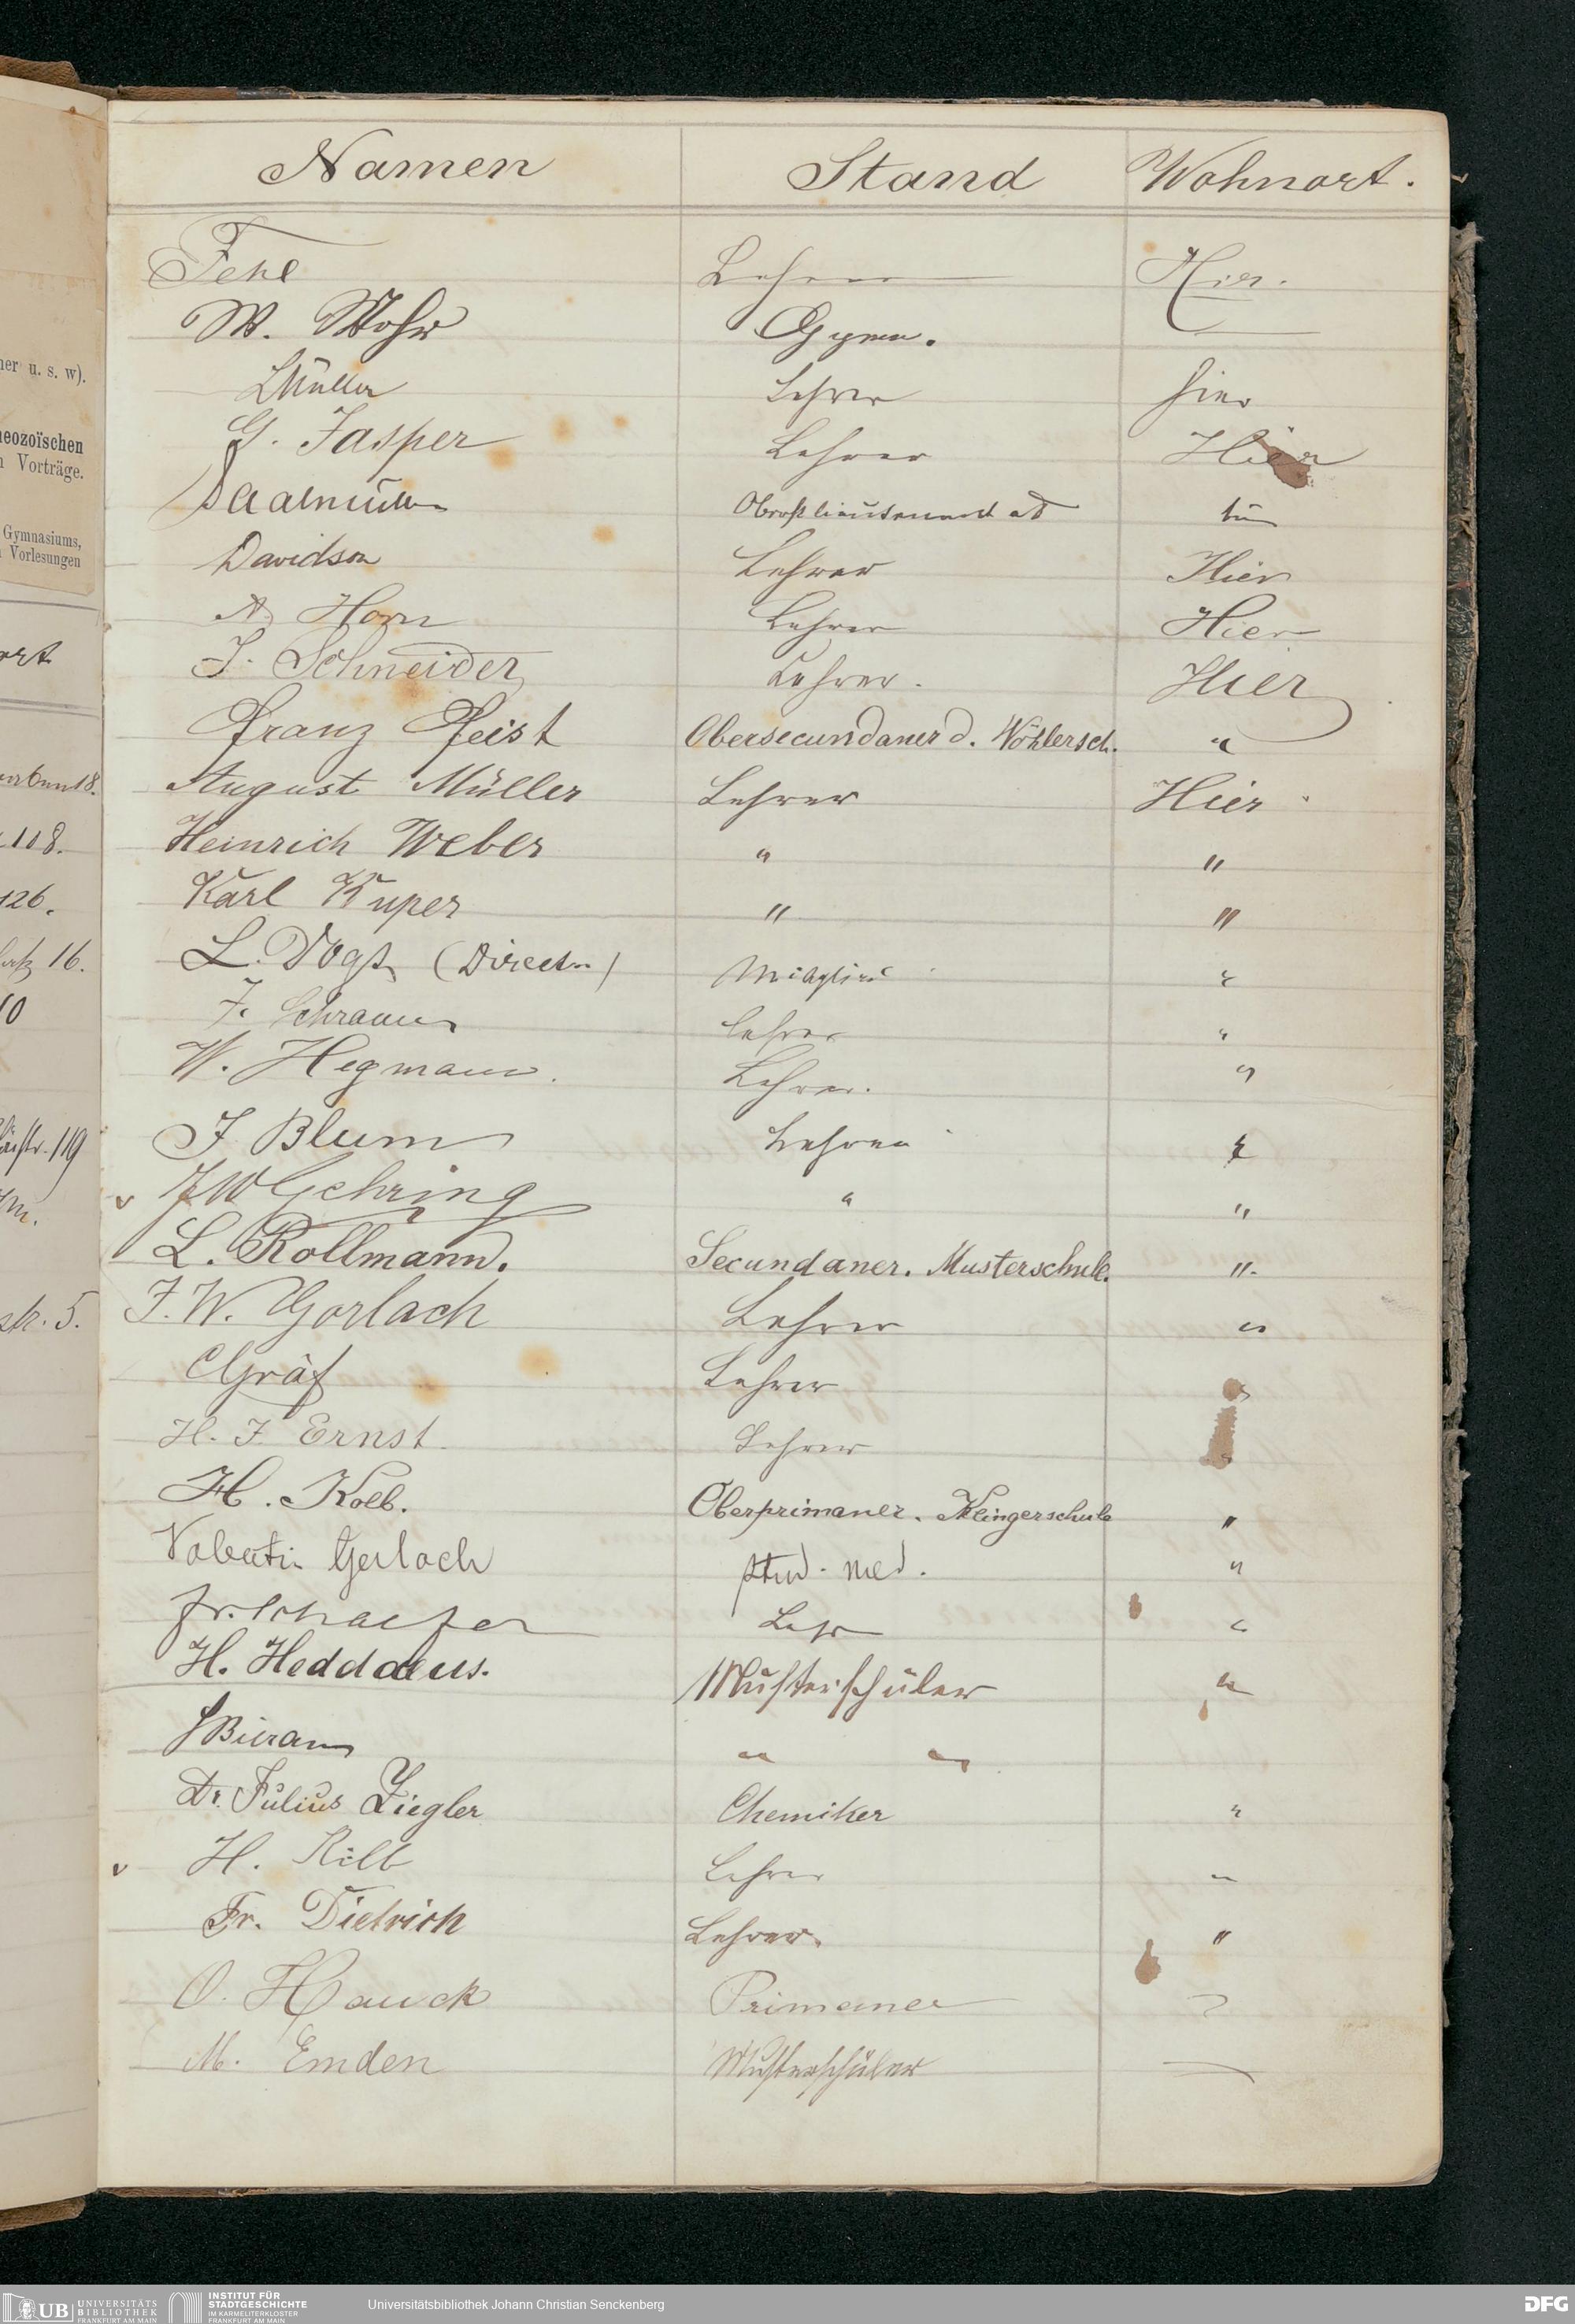 ner u. s. w).
neozoïschen
n Vorträge.
Gymnasiums,
Vorlesungen
ort
108.
126.
16.
10
119
str. 5.
Namen Stand Wohnort.
Fehl Lehrer Hier.
W. Mohr Gymn.
LMüller Lehrer hier
G. Jasper Lehrer Hier
Saalmüller Oberstlieutenant aD
Davidson Lehrer Hier
A. Horn Lehrer Hier
J. Schneider Lehrer. Hier
Franz Feist Obersecundaner d. Wöhlersch. "
August Müller Lehrer Hier
Heinrich Weber " "
Karl Kuper " "
L. Vogt (Director) Mitglied "
F. Schramm Lehrer "
W. Hegmann. Lehrer. "
J Blum Lehrer "
v JWGehring " "
L. Rollmann. Secundaner. Musterschule. "
F. W. Gorlach Lehrer "
CGräf Lehrer "
H. F. Ernst. Lehrer "
H. Kolb. Oberprimaner. Klingerschule "
Valentin Gerlach stud. med. "
Fr. Schaefer Lehr "
H. Heddaeus. Musterschüler "
" "
Dr. Julius Ziegler Chemiker "
v H. Kilb Lehrer "
Fr. Dietrich Lehrer. "
O. Hauck Primaner "
M. Emden Musterschüler
UB UNIVERSITÄTS
BIBLIOTHEK
FRANKFURT AM MAIN
INSTITUT FÜR
STADTGESCHICHTE
IM KARMELITERKLOSTER
FRANKFURT AM MAIN
Universitätsbibliothek Johann Christian Senckenberg
DFG